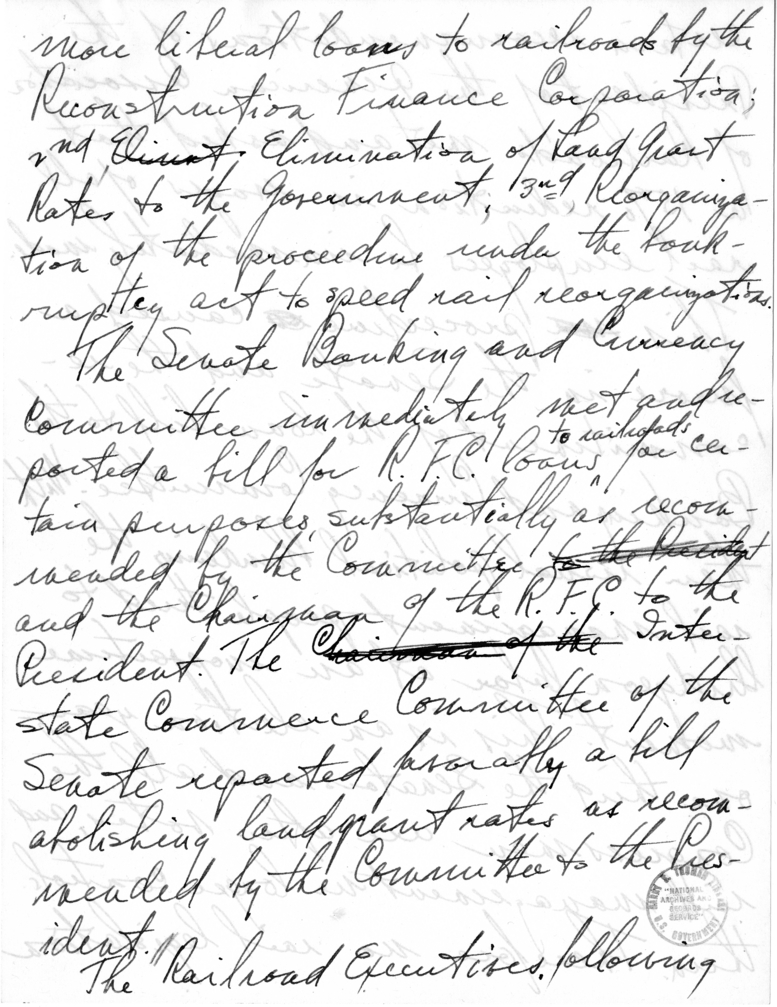 more liberal loans to railroads by the
Reconstruction Finance Corporation;
2nd, Eliminat. Elimination of Land Grant
Rates to the Government; 3rd, Reorganiza-
tion of the proceedure under the bank-
ruptcy act to speed rail reorganizations.
The Senate Banking and Currency
Committee immediately met and re-
to railroads
ported a bill for R.F.C. loans ^ for cer-
tain purposes, substantially as recom-
mended by the Committee to the President
and the Chairman of the R.F.C. to the
President. The Chairman of the Inter-
state Commerce Committee of the
Senate reported favorally a bill
abolishing land grant rates as recom-
mended by the Committee to the Pres-
ident."
The Railroad Executives, following
HARRY S. TRUMAN LIBRARY
"NATIONAL
ARCHIVES AND
RECORDS
SERVICE"
U.S. GOVERNMENT